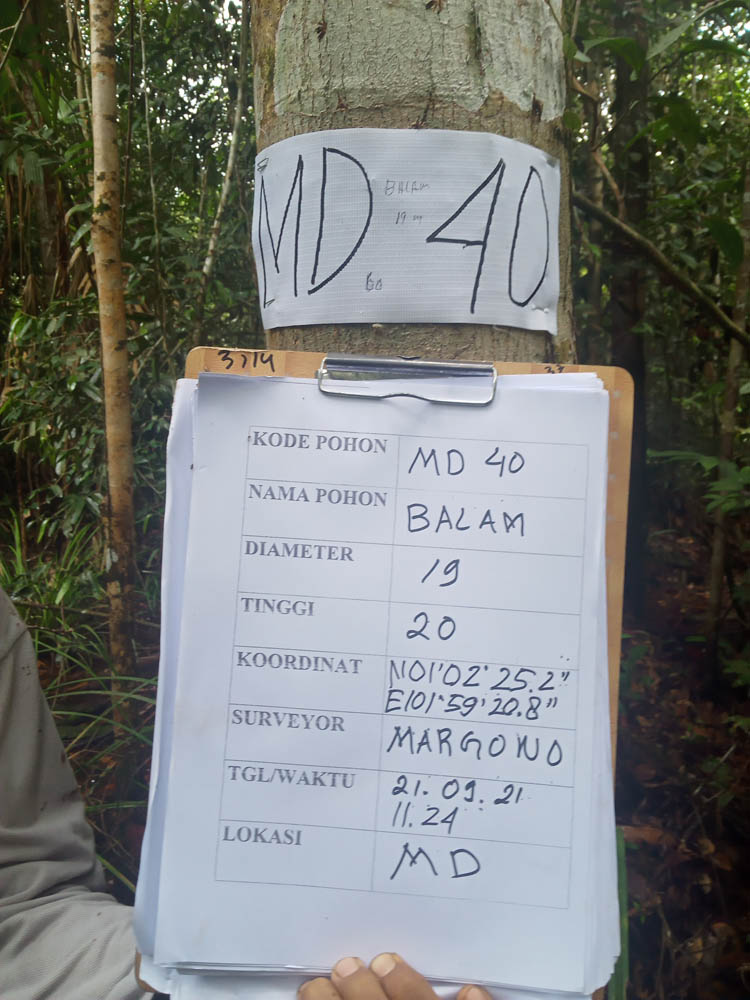 MD 40
BALAM
19 m
60
3714
KODE POHON MD 40
NAMA POHON BALAM
DIAMETER 19
TINGGI 20
KOORDINAT N01°02'25.2"
E101°59'20.8"
SURVEYOR MARGONO
TGL/WAKTU 21.09.21
11.24
LOKASI MD